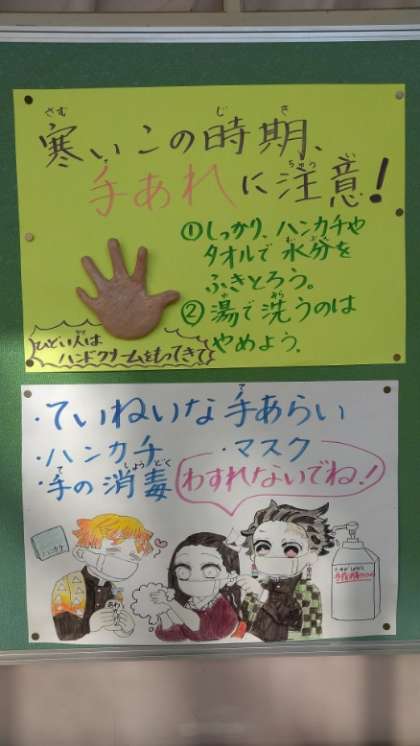 寒いこの時期、
手あれに注意！
①しっかり、ハンカチや
タオルで水分を
ふきとろう。
②湯で洗うのは
やめよう。
ひどい人は
ハンドクリームをもってきて
・ていねいな手あらい
・ハンカチ ・マスク
・手の消毒 わすれないでね！
ハンカチ